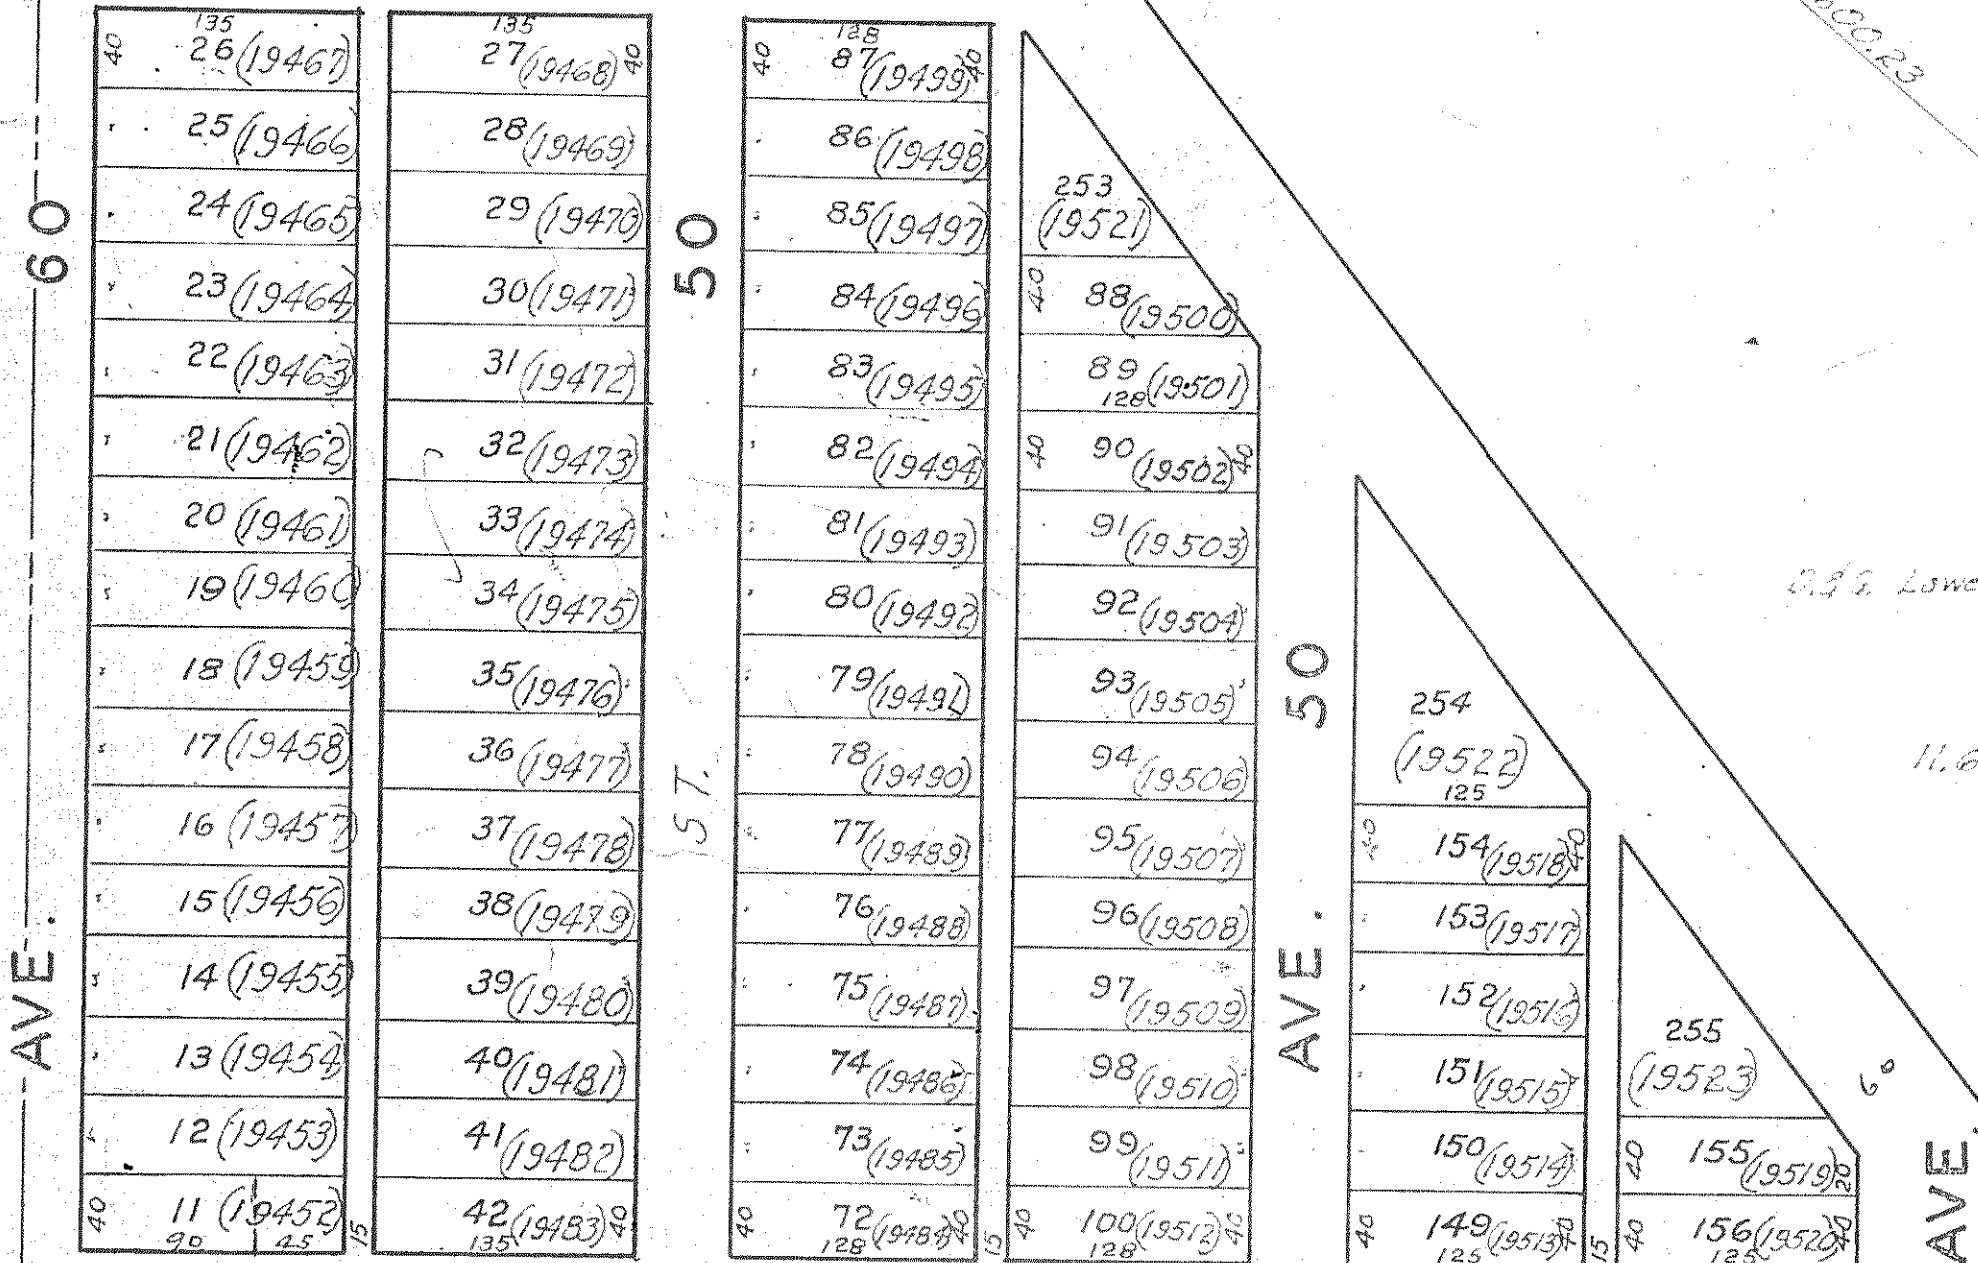 60
AVE.
135
40 26 (19467)
25 (19466)
24 (19465)
23 (19464)
22 (19463)
21 (19462)
20 (19461)
19 (19460)
18 (19459)
17 (19458)
16 (19457)
15 (19456)
14 (19455)
13 (19454)
12 (19453)
40 11 (19452)
90 45
15
135
27 (19468) 40
28 (19469)
29 (19470)
30 (19471)
31 (19472)
32 (19473)
33 (19474)
34 (19475)
35 (19476)
36 (19477)
37 (19478)
38 (19479)
39 (19480)
40 (19481)
41 (19482)
42 (19483) 40
135
50
ST.
128
40 87 (19499) 40
86 (19498)
85 (19497)
84 (19496)
83 (19495)
82 (19494)
81 (19493)
80 (19492)
79 (19491)
78 (19490)
77 (19489)
76 (19488)
75 (19487)
74 (19486)
73 (19485)
40 72 (19484) 40
128
15
253
(19521)
40 88 (19500)
89 (19501)
128
40 90 (19502) 40
91 (19503)
92 (19504)
93 (19505)
94 (19506)
95 (19507)
96 (19508)
97 (19509)
98 (19510)
99 (19511)
40 100 (19512) 40
128
50
AVE.
254
(19522)
125
40 154 (19518) 40
153 (19517)
152 (19516)
151 (19515)
150 (19514)
40 149 (19513) 40
125
15
255
(19523)
40 155 (19519) 20
40 156 (19520) 40
125
60
AVE.
00.23
Lowe
11.6